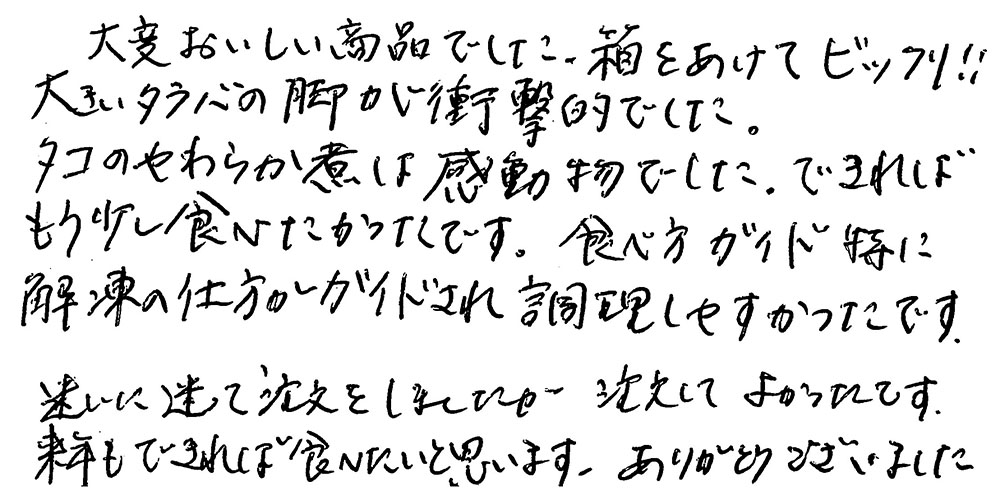 大変おいしい商品でした。箱をあけてビックリ!!
大きいタラバの脚が衝撃的でした。
タコのやわらか煮は感動物でした。できれば
もう少し食べたかったです。食べ方ガイド特に
解凍の仕方がガイドされ調理しやすかったです。
迷いに迷て注文をしましたが注文してよかったです。
来年もできれば食べたいと思います。ありがとうございました